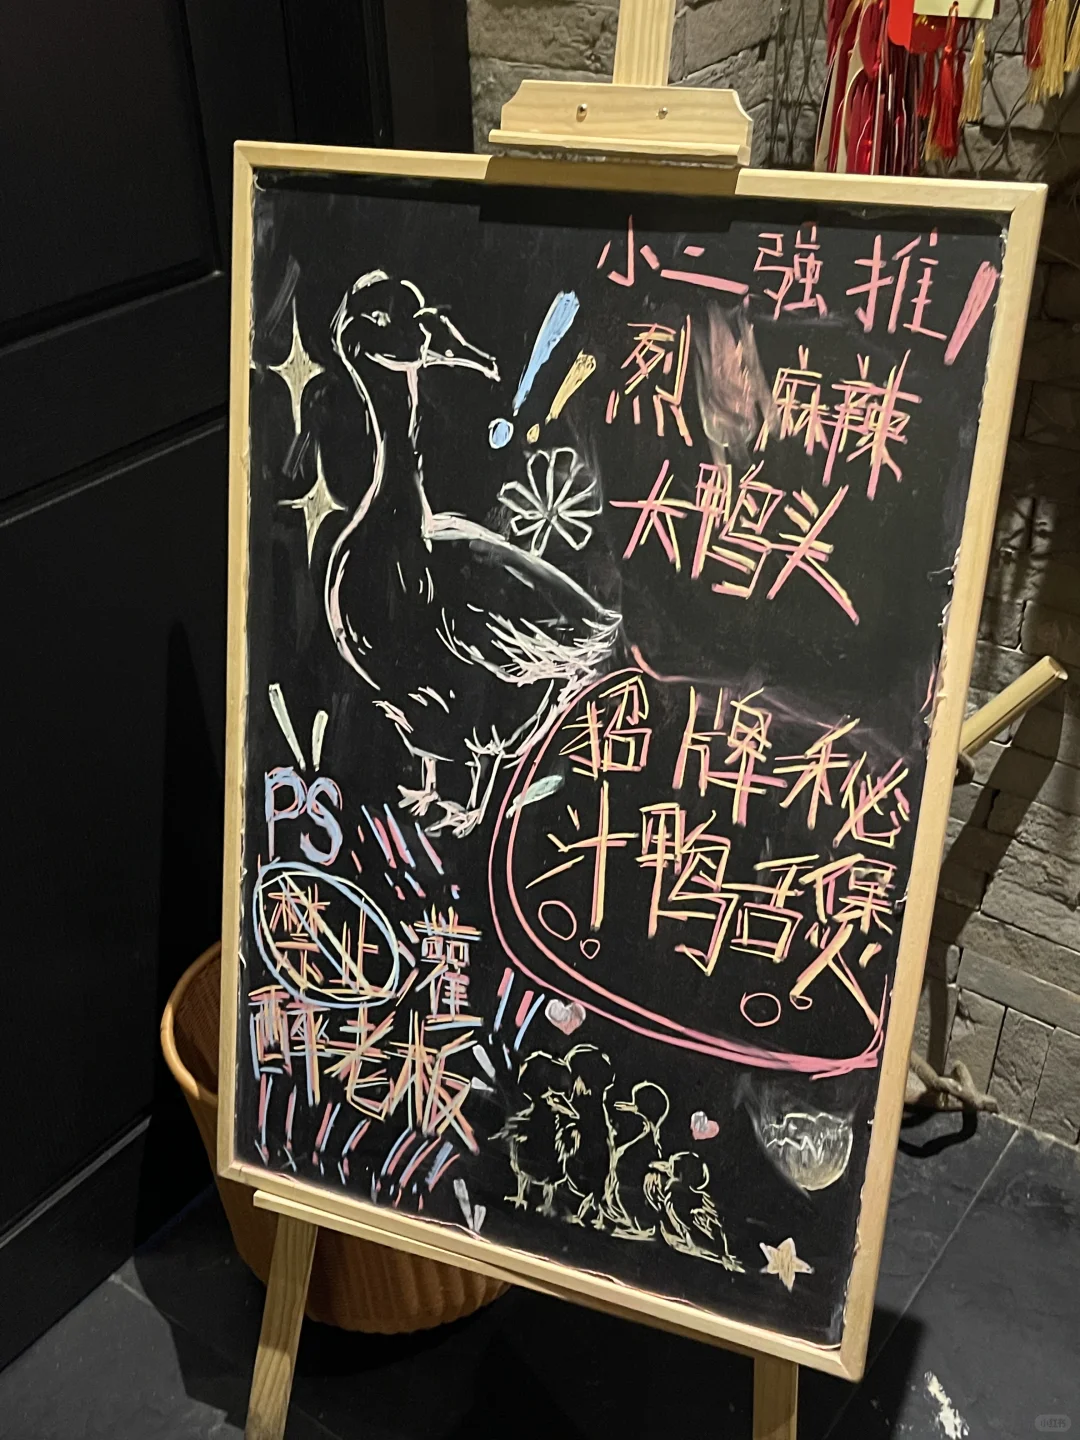 小二强推！
烈麻辣
大鸭头
招牌秘
汁鸭舌煲
PS
禁止灌
醉老板
小红书